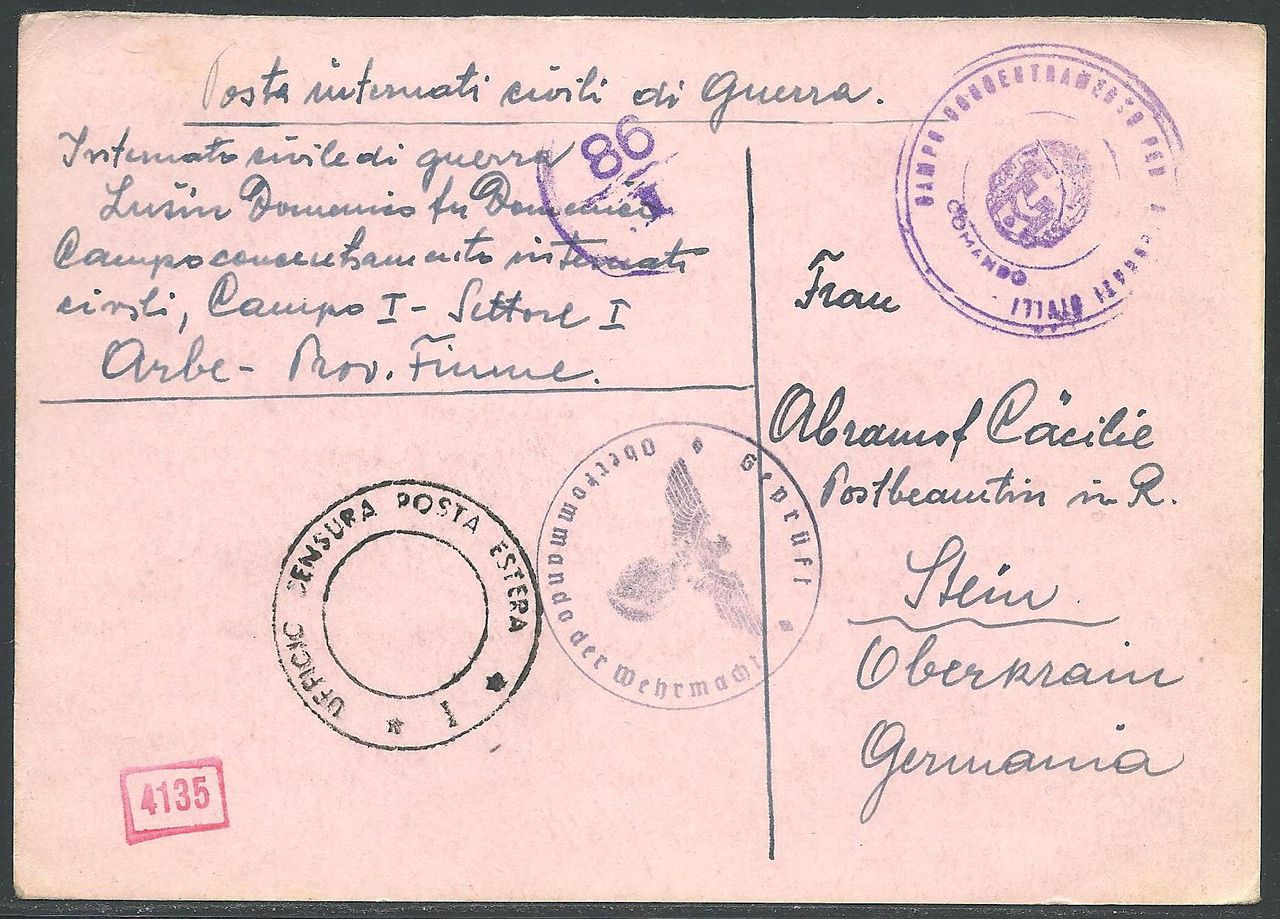 Posta internati civili di Guerra.
Internato civile di guerra
Lušin Domenico fu Domenico
Campo concentramento internati
civili, Campo I - Settore I
Arbe - Prov. Fiume.
98
CAMPO CONCENTRAMENTO PER INTERNATI CIVILI
COMANDO
Frau
Abramof Cäcilie
Postbeamtin in R.
Stein
Oberkrain
Germania
Geprüft
Oberkommando der Wehrmacht
UFFICIO CENSURA POSTA ESTERA
I
4135